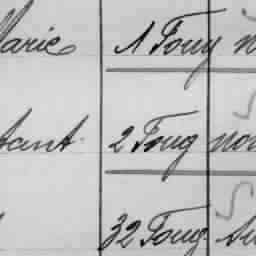 Marie 1 Foug
tant 2 Foug
32 Foug